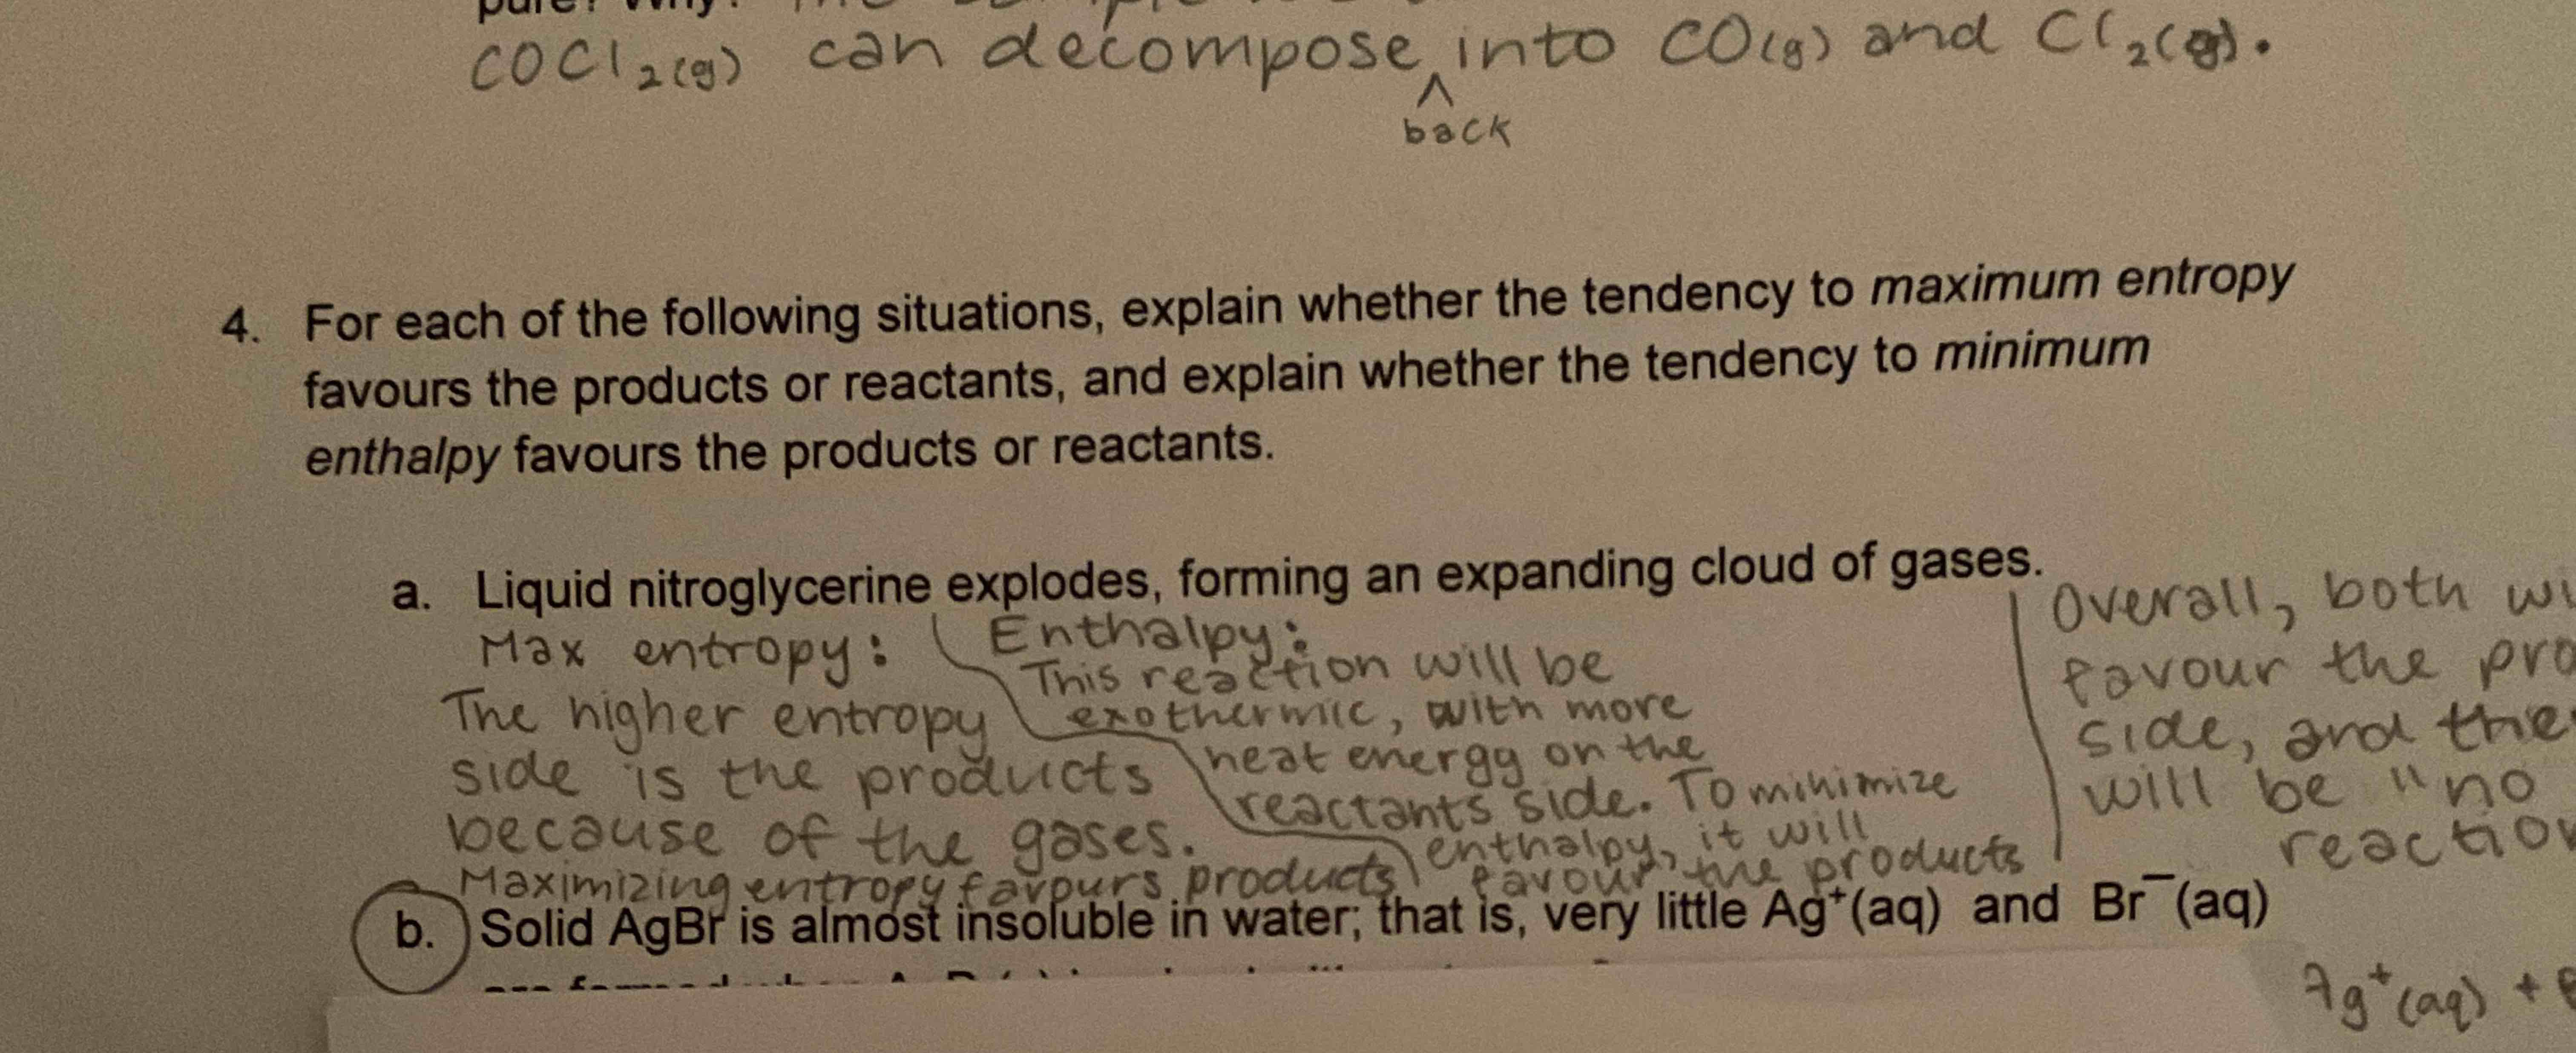 COCl₂(g) can decompose into CO(g) and Cl₂(g).
^
back
4. For each of the following situations, explain whether the tendency to maximum entropy
favours the products or reactants, and explain whether the tendency to minimum
enthalpy favours the products or reactants.
a. Liquid nitroglycerine explodes, forming an expanding cloud of gases.
Max entropy:
The higher entropy
side is the products
because of the gases.
Maximizing entropy favours products
Enthalpy:
This reaction will be
exothermic, with more
heat energy on the
reactants side. To minimize
enthalpy, it will
favour the products
Overall, both
favour the
side, and
will be "no
b. Solid AgBr is almost insoluble in water; that is, very little Ag⁺(aq) and Br⁻(aq)
Ag⁺(aq) +